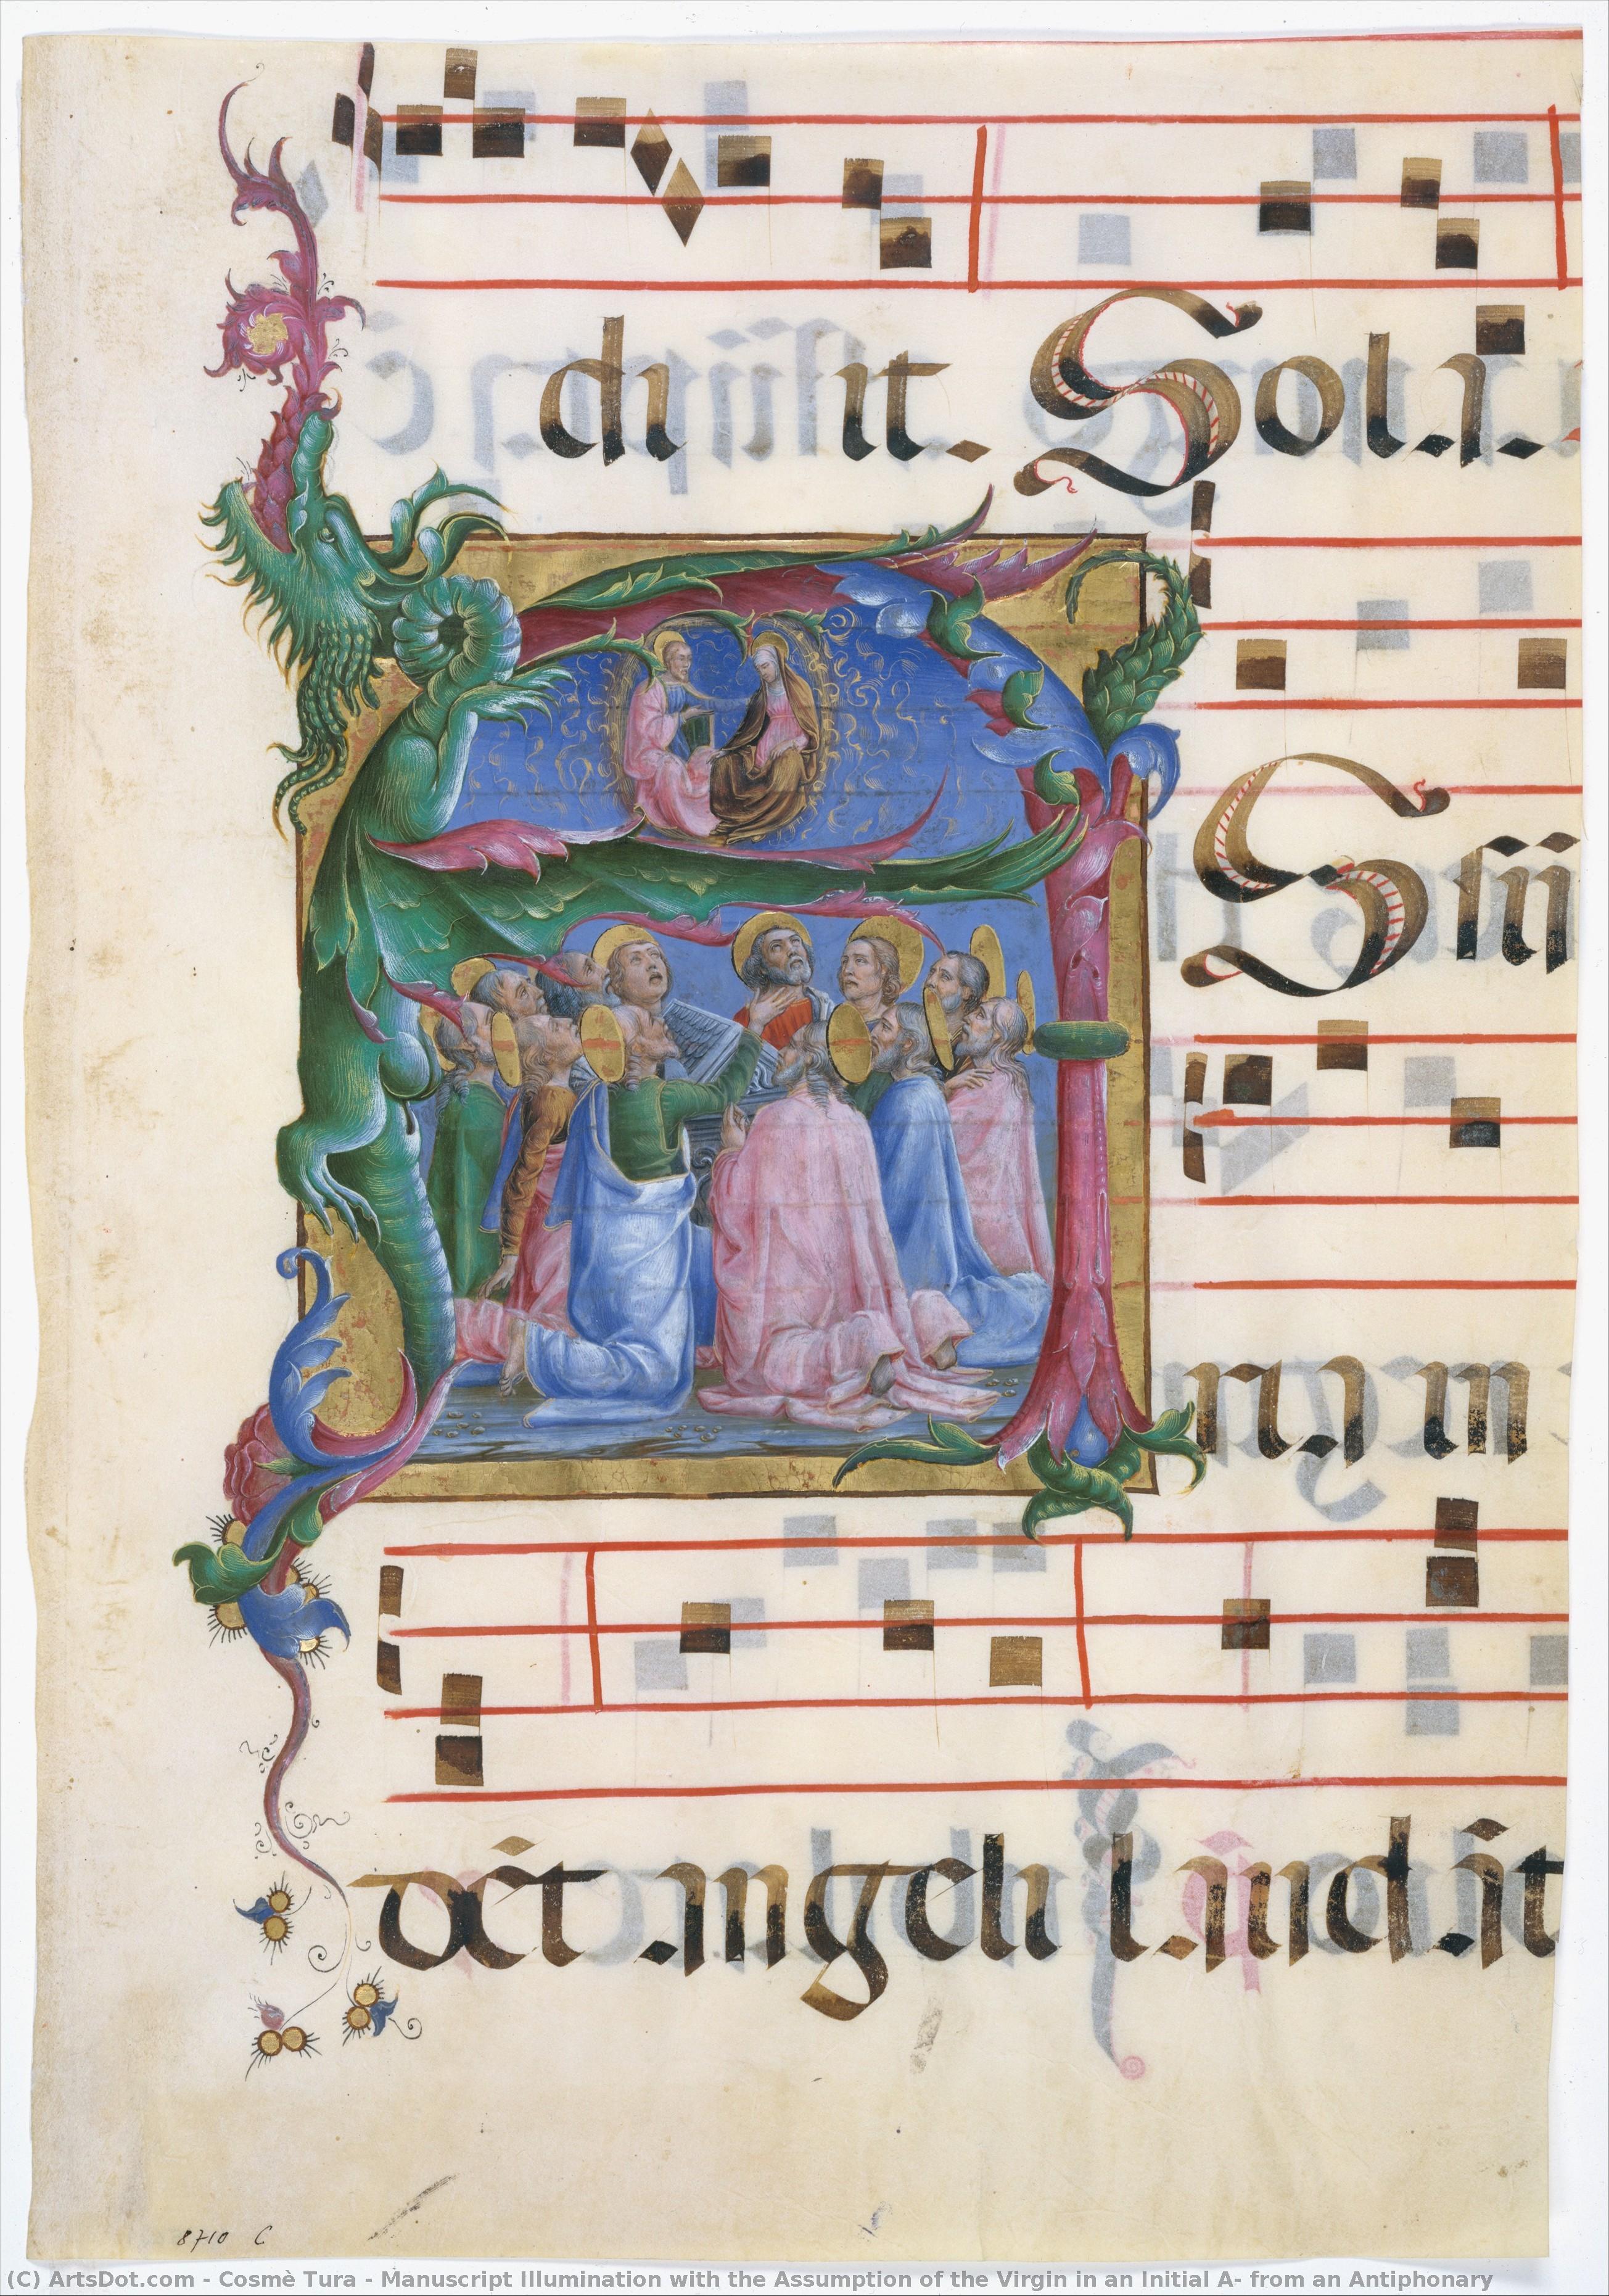 Sola.
A Ssu
ria in
dēt angeli laudāt
8710 C
(C) ArtsDot.com - Cosmè Tura - Manuscript Illumination with the Assumption of the Virgin in an Initial A- from an Antiphonary